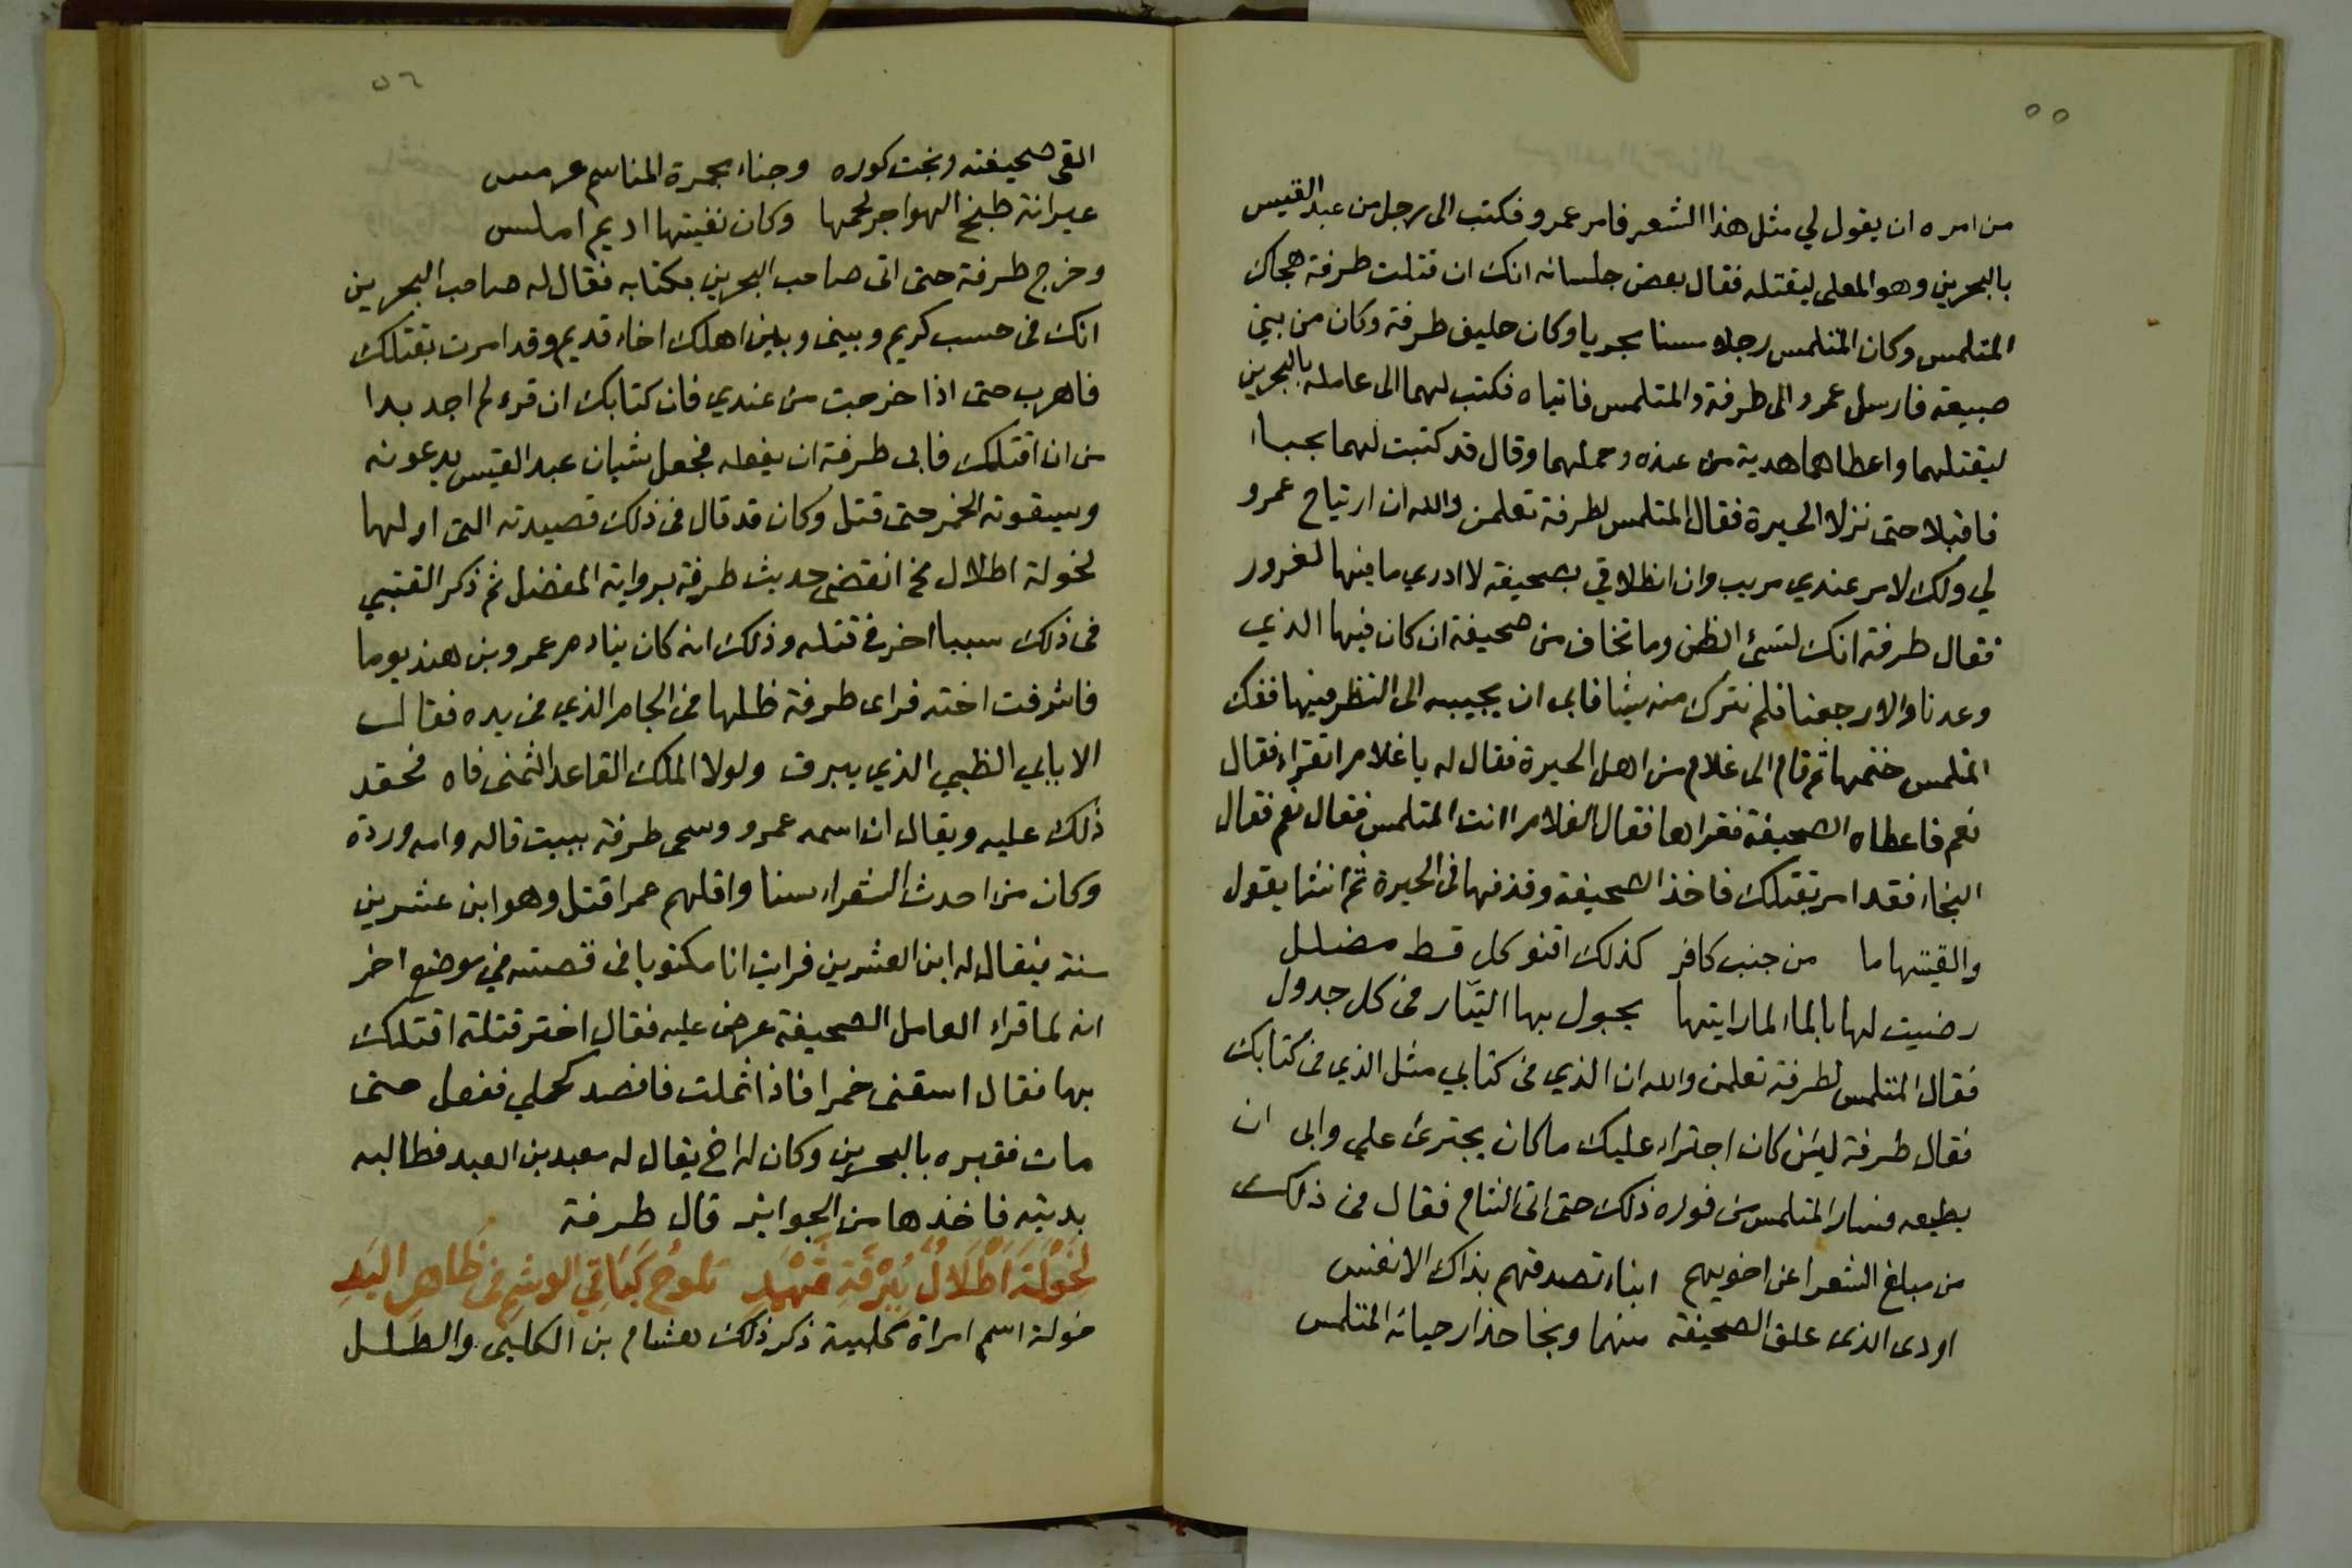 ٥٥
من امره ان يقول لي مثل هذا الشعر فامر عمرو فكتب الى رجل من عبد القيس
بالبحرين وهو المعلى ليقتله فقال بعض جلسائه انك ان قتلت طرفة هجاك
المتلمس وكان المتلمس رجلا مسنا مجربا وكان حليف طرفة وكان من بني
ضبيعه فارسل عمرو الى طرفة والمتلمس فاتياه فكتب لهما الى عامله بالبحرين
ليقتلهما واعطاهما هدية من عنده وحملهما وقال قد كتبت لهما بحباء
فاقبلا حتى نزلا الحيرة فقال المتلمس لطرفة تعلمن والله ان ارتياح عمرو
لي ولك لامر عندي مريب وان انطلاقي بصحيفة لا ادري ما فيها لغرور
فقال طرفة انك لتسئ الظن وما تخاف من صحيفة ان كان فيها الذي
وعدنا والا رجعنا فلم نترك منه شيئا فابى ان يجيبه الى النظر فيها ففك
المتلمس ختمها ثم قام الى غلام من اهل الحيرة فقال له يا غلام اتقراء فقال
نعم فاعطاه الصحيفة فقراها فقال الغلام اانت المتلمس فقال نعم فقال
النجاء فقد امر بقتلك فاخذ الصحيفة وقذفها في الحيرة ثم انشا يقول
والقيتها ما من جنب كافر كذلك اقنو كل قط مضلل
رضيت لها بالماء لما رايتها يجول بها التيّار في كل جدول
فقال المتلمس لطرفة تعلمن والله ان الذي في كتابي مثل الذي في كتابك
فقال طرفة لئن كان اجتراء عليك ما كان يجترئ علي وابى ان
يطيعه فسار المتلمس من فوره ذلك حتى اتى الشام فقال في ذلك
من مبلغ الشعرا عن اخويهم ابناء تصدقهم بذاك الانفس
اودى الذي علق الصحيفة منهما ونجا حذار حياته المتلمس
٥٦
القى صحيفته ونجت كوره وجناء مجمرة المناسم عرمس
عيرانة طبخ الهواجر لحمها وكان نقبتها اديم املس
وخرج طرفة حتى اتى صاحب البحرين بكتابه فقال له صاحب البحرين
انك في حسب كريم وبيني وبين اهلك اخاء قديم وقد امرت بقتلك
فاهرب حتى اذا خرجت من عندي فان كتابك ان قرء لم اجد بدا
من ان اقتلك فابى طرفة ان يفعله فجعل شبان عبد القيس يدعونه
ويسقونه الخمر حتى قتل وكان قد قال في ذلك قصيدته التي اولها
لخولة اطلال الخ انقضى حديث طرفة برواية المفضل ثم ذكر القتبي
في ذلك سببا اخر في قتله وذلك انه كان ينادم عمرو بن هند يوما
فاشرفت اخته فراى طرفة ظلها في الجام الذي في يده فقال
الا يابابي الظبي الذي يبرق ولولا الملك القاعد الثمنى فاه فحقد
ذلك عليه ويقال ان اسمه عمرو وسمى طرفة ببيت قاله وامه وردة
وكان من احدث الشعراء سنا واقلهم عمرا قتل وهو ابن عشرين
سنة فيقال له ابن العشرين فرايت انا مكتوبا في قصته في موضع اخر
انه لما قراء العامل الصحيفة عرض عليه فقال اختر قتلة اقتلك
بها فقال اسقني خمرا فاذا ثملت فافصد كحلي ففعل حتى
مات فقبره بالبحرين وكان له اخ يقال له معبد بن العبد فطالبه
بديته فاخذها من الحواثر قال طرفة
لِخَوْلَةَ اَطْلَالٌ بِبُرْقَةِ ثَهْمَدِ تَلوحُ كَبَاقِي الوشمِ في ظاهِرِ اليَدِ
خولة اسم امراة كلبية ذكر ذلك هشام بن الكلبي والطلل